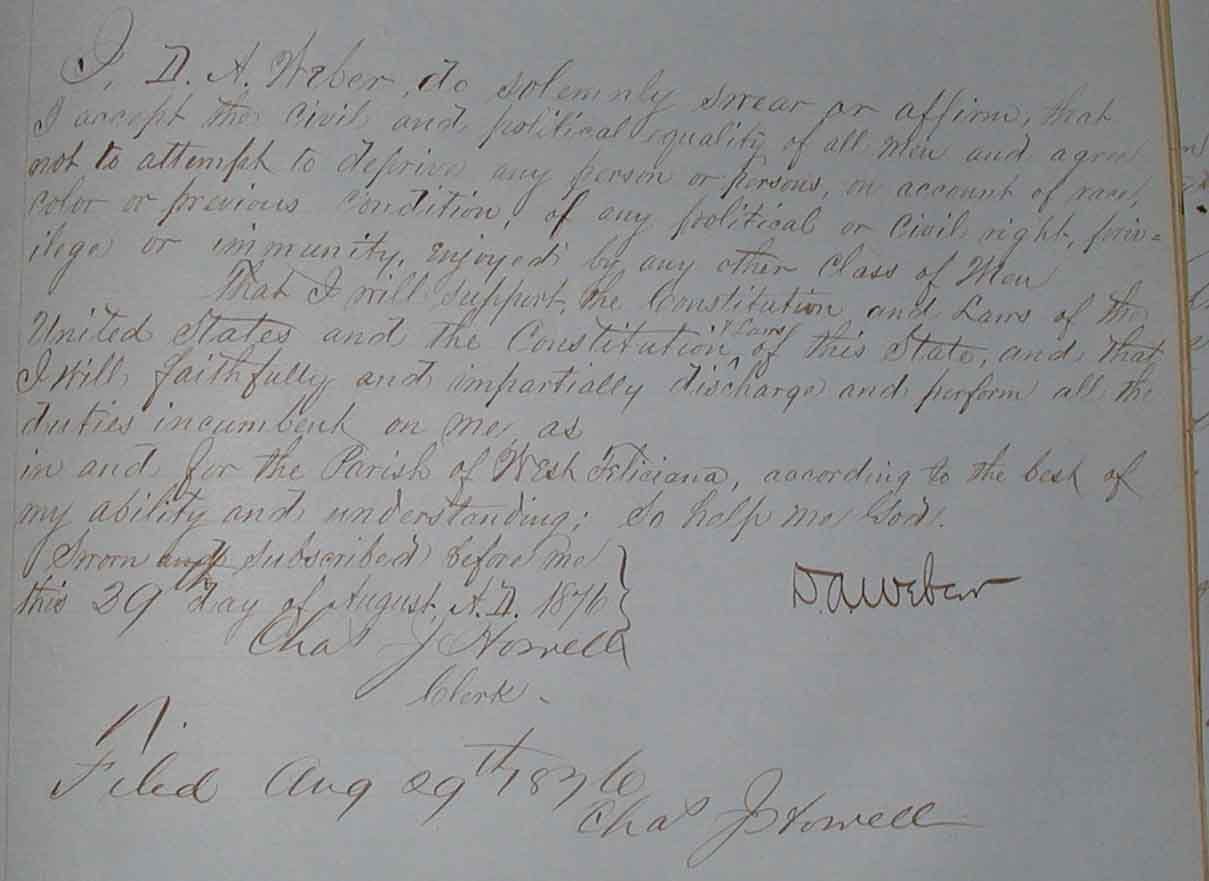 I, D. A. Weber, do solemnly swear or affirm, that
I accept the civil and political equality of all Men and agree
not to attempt to deprive any person or persons, on account of race,
color or previous condition, of any political or civil right, priv=
ilege or immunity, enjoyed by any other Class of Men
That I will support, the Constitution and Laws of the
United States and the Constitution & Laws of this State, and that
I will faithfully and impartially discharge and perform all the
duties incumbent on me, as
in and for the Parish of West Feliciana, according to the best of
my ability and understanding; So help me God.
Sworn and subscribed before me
this 29th day of August A.D. 1876
D. A. Weber
Chas J Howell
Clerk.
Filed Aug 29th 1876
Chas J Howell